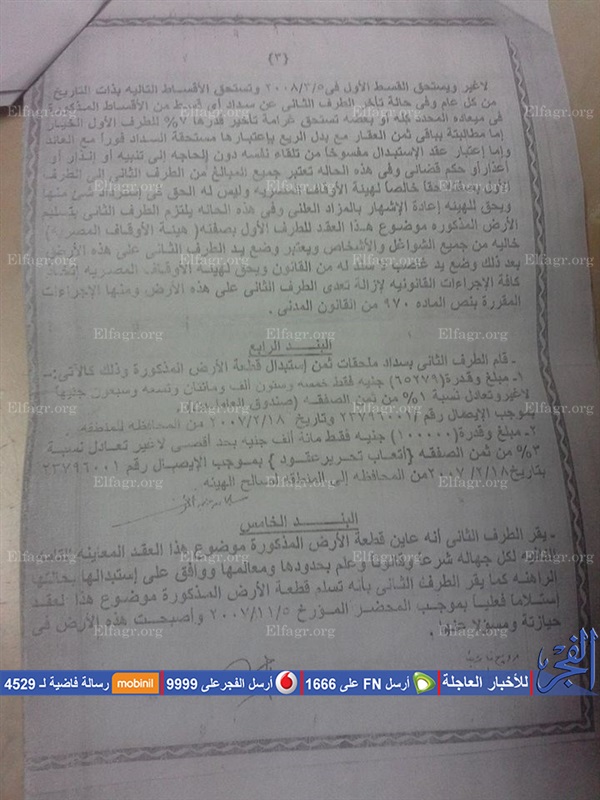 (٣)
لاغير ويستحق القسط الأول فى ٢٠٠٨/٣/٥ وتستحق الأقساط التاليه بذات التاريخ
من كل عام وفى حالة تأخر الطرف الثانى عن سداد أى قسط من الأقساط المذكورة
فى ميعاده المحدد له أو بعضه تستحق غرامة تأخير قدرها ٧% للطرف الأول الخيار
إما مطالبتة بباقى ثمن العقار مع بدل الريع بإعتبارها مستحقة السداد فوراً مع العائد
وإما إعتبار عقد الإستبدال مفسوخاً من تلقاء نفسه دون الحاجه إلى تنبيه أو إنذار أو
أعذار أو حكم قضائى وفى هذه الحاله تعتبر جميع المبالغ من الطرف الثانى إلى الطرف
حقاً خالصاً لهيئة الأوقاف وليس له الحق فى منها
ويحق للهيئه إعادة الإشهار بالمزاد العلنى وفى هذه الحاله يلتزم الطرف الثانى بتسليم
الأرض المذكوره موضوع هذا العقد للطرف الأول بصفته( هيئة الأوقاف المصريه)
خاليه من جميع الشواغل والأشخاص ويعتبر وضع يد الطرف الثانى على هذه الأرض
بعد ذلك وضع يد غاصب لا سند له من القانون ويحق لهيئة الأوقاف المصريه إتخاذ
كافة الإجراءات القانونيه لإزالة تعدى الطرف الثانى على هذه الأرض ومنها الإجراءات
المقررة بنص الماده ٩٧٠ من القانون المدنى .
البند الرابع
- قام الطرف الثانى بسداد ملحقات ثمن إستبدال قطعة الأرض المذكورة وذلك كالآتى:-
١- مبلغ وقدرة(٦٥٢٧٩) جنيه فقط خمسه وستون ألف ومائتان وتسعه وسبعون جنيها
لاغير وتعادل نسبة ١% من ثمن الصفقه (صندوق العاملين)
بموجب الإيصال رقم /٢٣٧٩٦٠٠١ وتاريخ ٢٠٠٧/٢/١٨ من المحافظه للمنطقه.
٢- مبلغ وقدرة(١٠٠٠٠٠) جنيه فقط مائة ألف جنيه بحد أقصى لاغير تعادل نسبة
٣% من ثمن الصفقه {أتعاب تحرير عقود } بموجب الإيصال رقم ٢٣٧٩٦٠٠١
بتاريخ ٢٠٠٧/٢/١٨ من المحافظه إلى المنطقه لصالح الهيئه
البند الخامس
- يقر الطرف الثانى أنه عاين قطعة الأرض المذكورة موضوع هذا العقد المعاينه التامه
لكل جهاله شرعاً وقانوناً وعلم بحدودها ومعالمها ووافق على إستبدالها بحالتها
الراهنه كما يقر الطرف الثانى بأنه تسلم قطعة الأرض المذكورة موضوع هذا العقد
إستلاماً فعلياً بموجب المحضر المؤرخ ٢٠٠٧/١١/٥ وأصبحت هذه الأرض فى
حيازتة ومسئولا عنها .
Elfagr.org
الفجر
للأخبار العاجلة أرسل FN على 1666 أرسل الفجر على 9999 mobinil رسالة فاضية لـ 4529